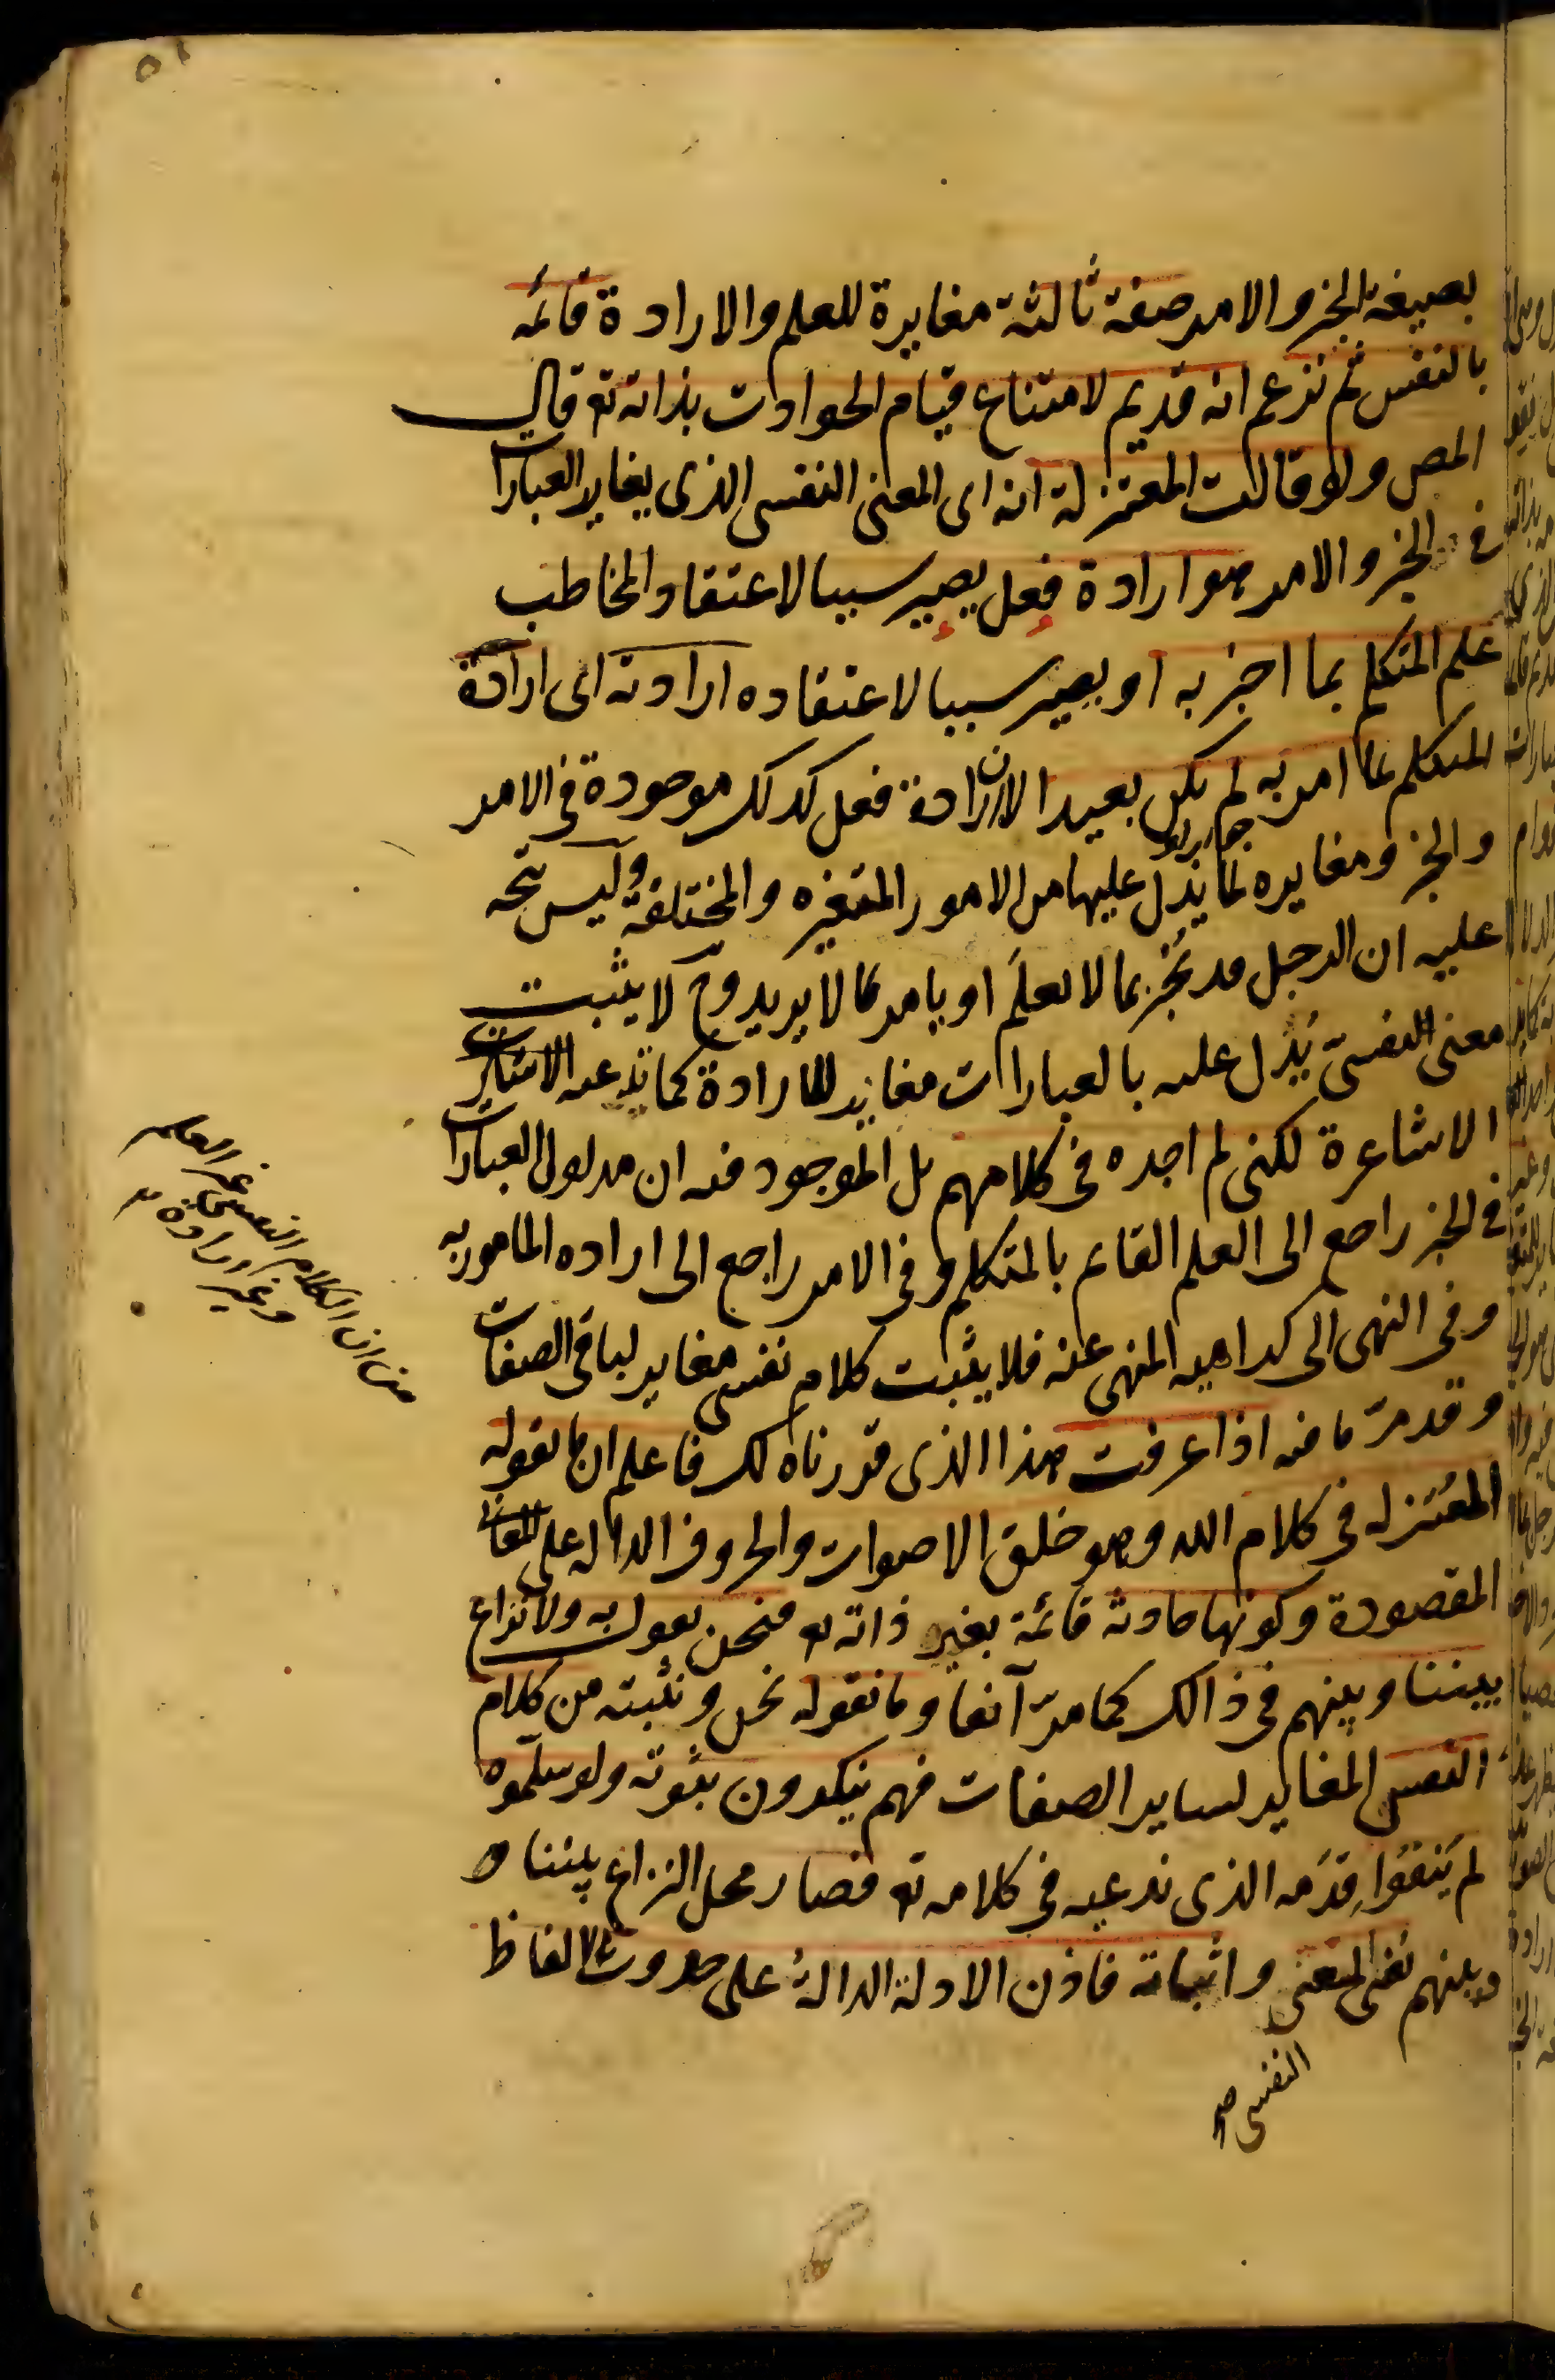 بصيغة الخبر والامر صفة ثالثة مغايرة للعلم والارادة قائمه
بالنفس ثم نزعم انه قديم لامتناع قيام الحوادث بذاته تع قال
المص ولو قالت المعتزلة انه اى المعنى النفسى الذى يغاير العبارات
فى الخبر والامر هو ارادة فعل يصير سببا لاعتقاد المخاطب
علم المتكلم بما اخبر به او يصير سببا لاعتقاده ارادته اى ارادة
المتكلم لما امر به لم يكن بعيدا لان ارادة فعل كذلك موجودة فى الامر
والخبر ومغايره لما يدل عليها من الامور المتغيره والمختلفة وليس يتجه
عليه ان الرجل قد يخبر بما لا يعلم او يامر بما لا يريد وح لا يثبت
معنى النفسى يدل عليه بالعبارات مغاير للارادة كما تدعيه
الاشاعرة لكنى لم اجده فى كلامهم بل الموجود فيه ان مدلول العبارات
فى الخبر راجع الى العلم القائم بالمتكلم وفى الامر راجع الى اراده المامور به
وفى النهى الى كراهيه المنهى عنه فلا يثبت كلام نفسى مغاير لباقى الصفات
وقد مرّ ما فيه اذا عرفت هذا الذى قررناه لك فاعلم ان ما يقوله
المعتزله فى كلام الله وهو خلق الاصوات والحروف الداله على المعانى
المقصودة وكونها حادثه قائمة بغير ذاته تع فنحن نقول به ولا نزاع
بيننا وبينهم فى ذالك كما مرّ آنفا وما نقوله نحن ونثبته من كلام
النفسى المغاير لساير الصفات فهم ينكرون بثوته ولو سلموه
لم ينفوا قدمه الذى ندعيه فى كلامه تع فصار محل النزاع بيننا و
وبينهم نفى المعنى واثباته فاذن الادلة الدالة على حدوث الالفاظ
النفسى صح
من ان الكلام النفسى غير العلم
وغير ارادة